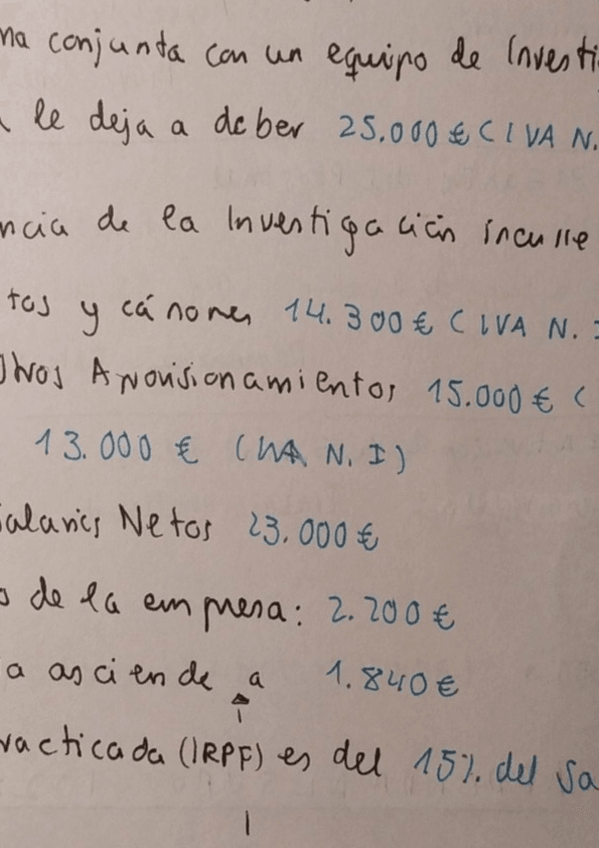 na conjunta con un equipo de Investi
le deja a deber 25.000 € (IVA N.
ncia de la Investigación incurre
tos y cánones 14.300 € (IVA N. I
Otros Aprovisionamientos 15.000 € (
13.000 € (IVA N. I)
Salarios Netos 23.000 €
s de la empresa: 2.200 €
a asciende a 1.840 €
racticada (IRPF) es del 15% del Sa